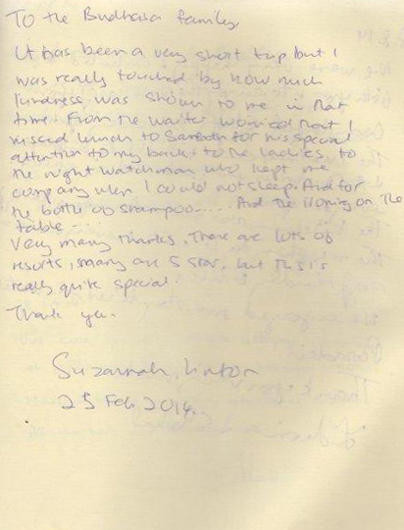 To the Budhasa family
It has been a very short trip but I
was really touched by how much
kindness was shown to me in that
time. From the waiter worried that I
missed lunch to for his special
attention to my back to the ladies, to
the night watchman who kept me
company when I could not sleep. And for
the bottle of shampoo..... And the ironing on the
table...
Very many thanks. There are lots of
resorts, many are 5 star, but this is
really quite special.
Thank you.
Suzannah Linton
25 Feb 2014.